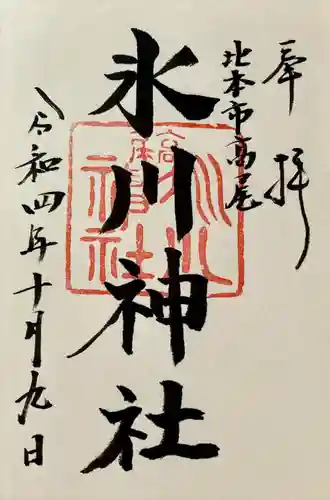 奉拝
北本市高尾
氷川神社
令和四年十月九日
高尾
氷川
神社